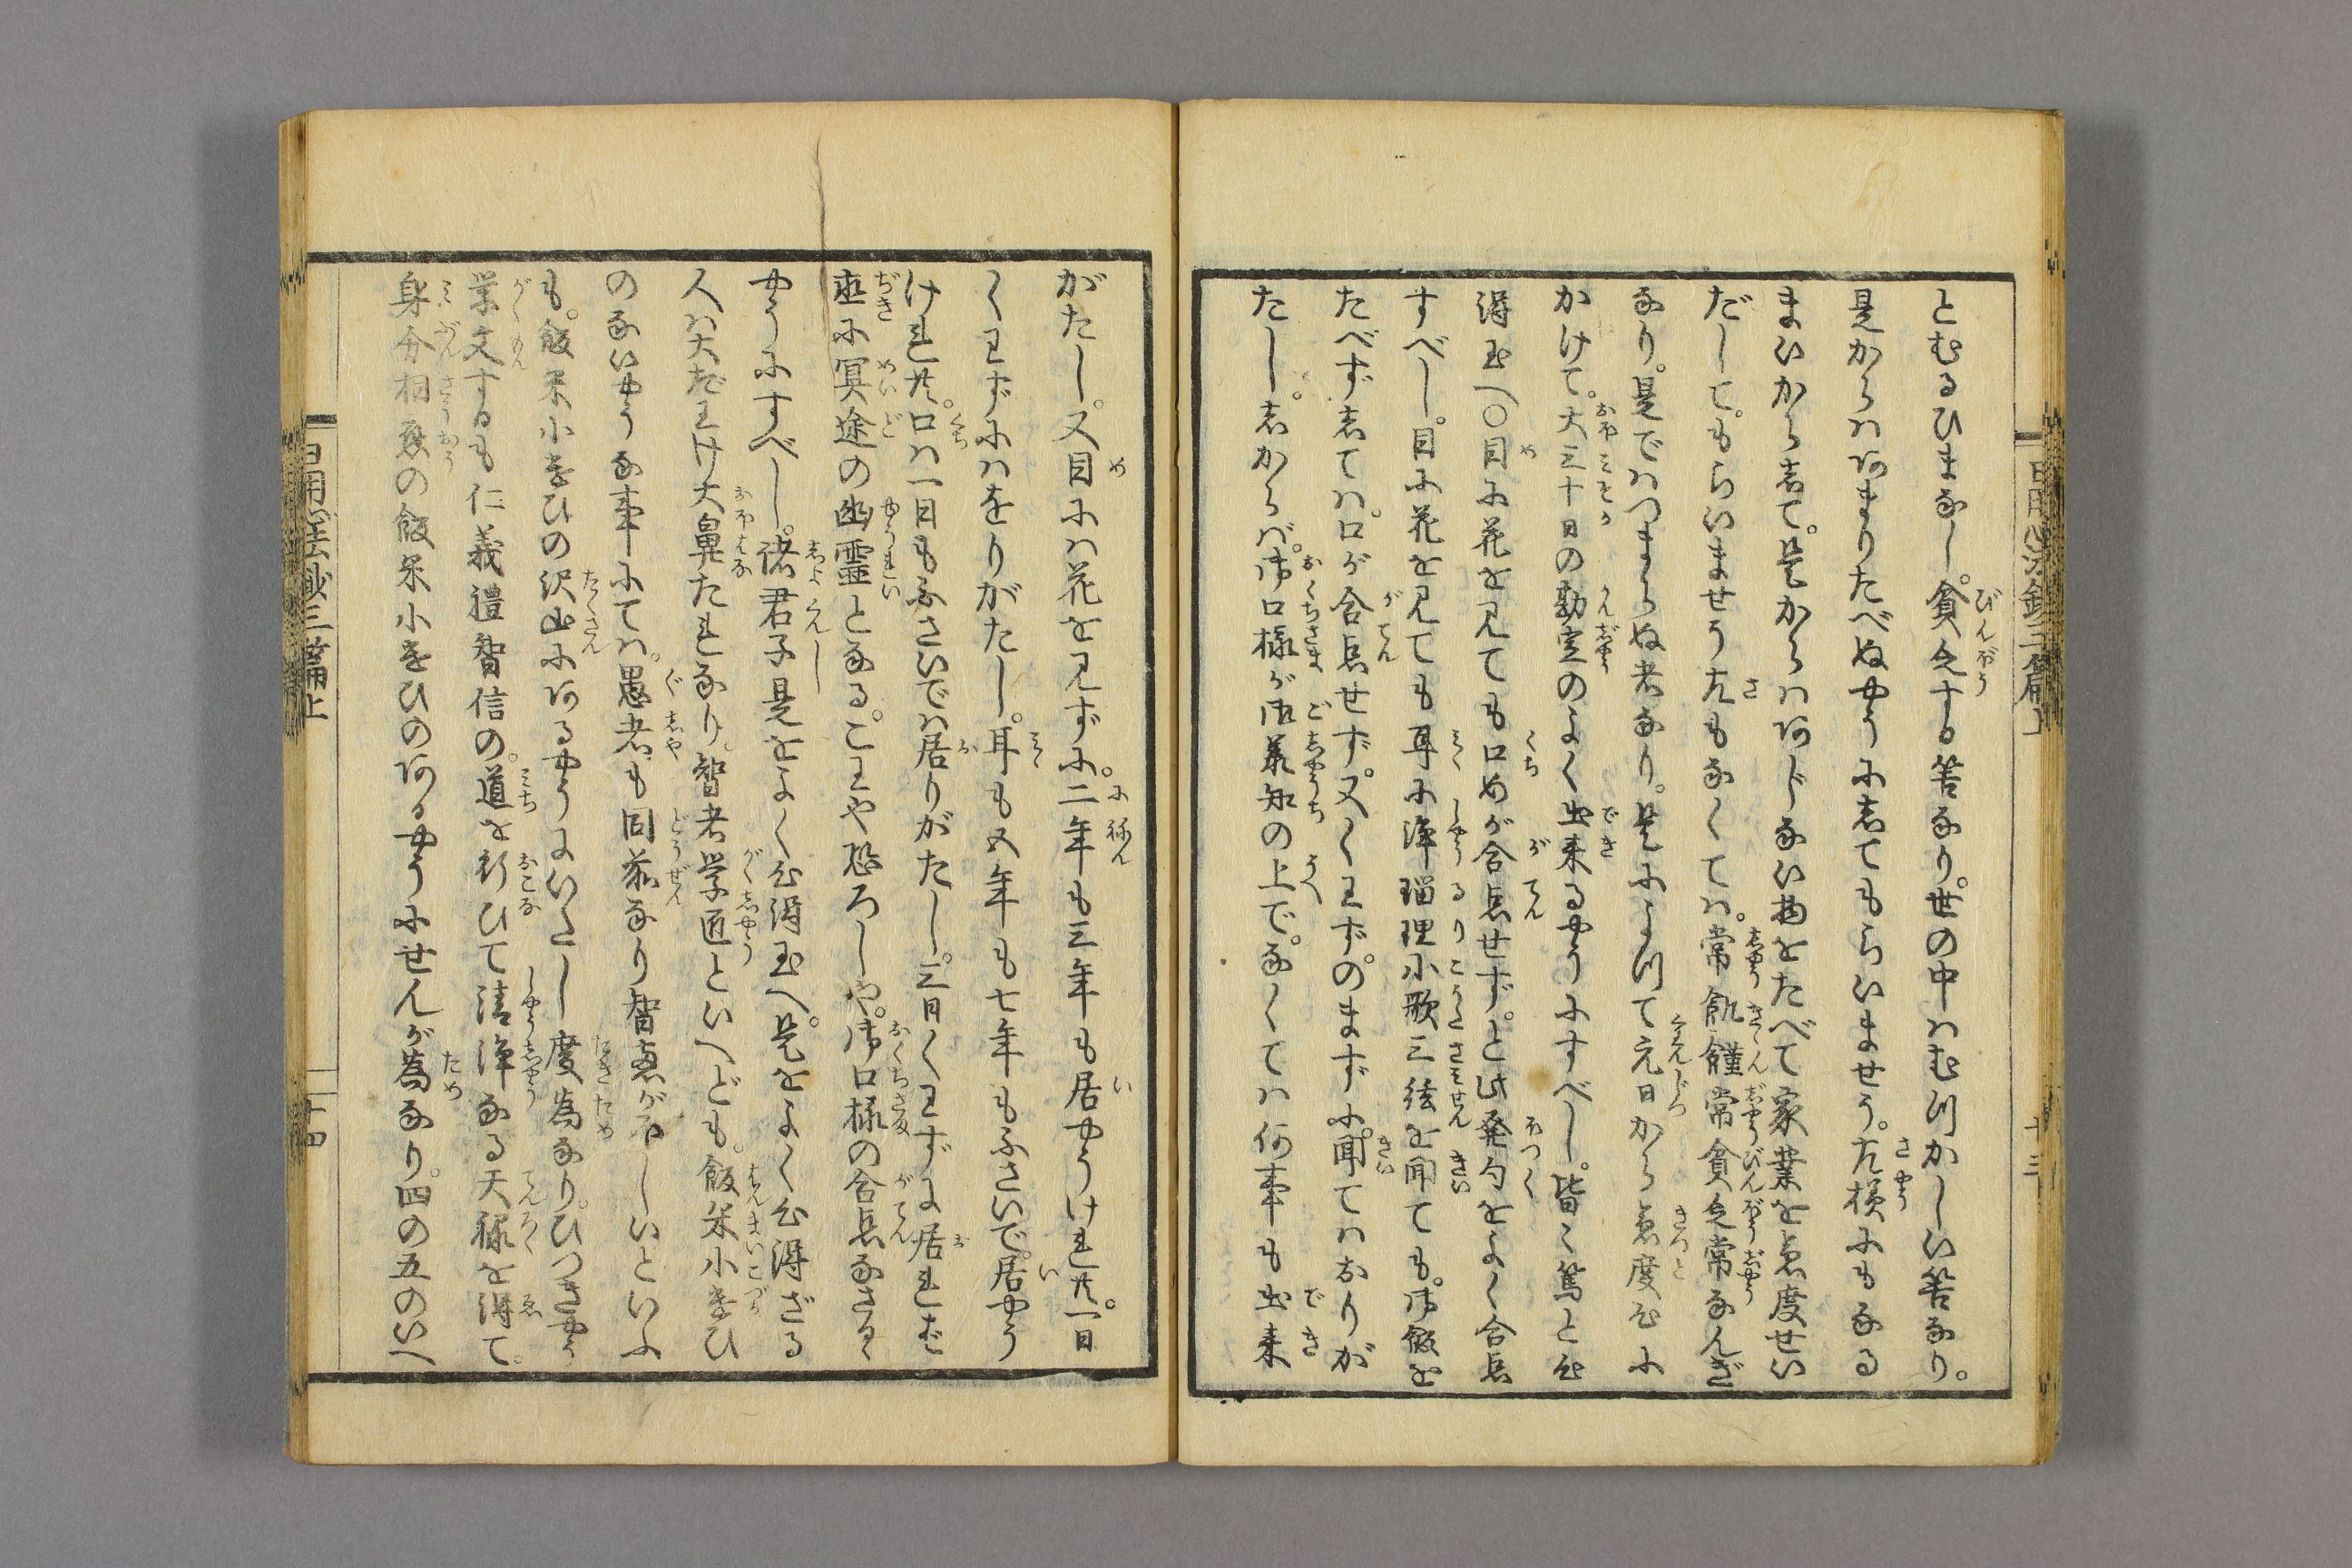 とむるひまなし。貧乏する筈なり。世の中はむつかしい筈なり。
是からはあまりたべぬやうにしてもらいませう。左様にもなる
まいからして。是からはあぢない物をたべて家業を急度せい
だして。もらいませう左もなくては。常飢饉常貧乏常なんぎ
なり。是ではつまらぬ者なり。是によつて元日から急度心に
かけて。大三十日の勘定のよく出来るやうにすべし。皆々篤と心
得玉へ○目に花を見ても口めが合点せず。と此発句をよく合点
すべし。目に花を見ても耳に浄瑠理小歌三弦を聞ても。御飯を
たべずしては。口が合点せず。又くわず。のまずに。聞てはおりが
たし。しからば。御口様が御承知の上で。なくては何事も出来
がたし。又目には花を見ずに。二年も三年も居やうけれ共。一日
くわずにはをりがたし。耳も五年も七年もふさいで。居やう
けれ共。口は一日もふさいでは居りがたし。三日くわずに居れば
直に冥途の幽霊となる。こわや恐ろしや。御口様の合点なさるゝ
やうにすべし。諸君子是をよく心得玉へ。是をよく心得ざる
人は大だわけ大鼻たれなり。智者学匠といへども。飯米小遣ひ
のないやうな事にては。愚者も同前なり智恵がほしいといふ
も。飯米小遣ひの沢山にあるやうにいたし度為なり。ひつきやう
学文するも仁義礼智信の。道を行ひて清浄なる天禄を得て。
身分相応の飯米小遣ひのあるやうにせんが為なり。四の五のいへ